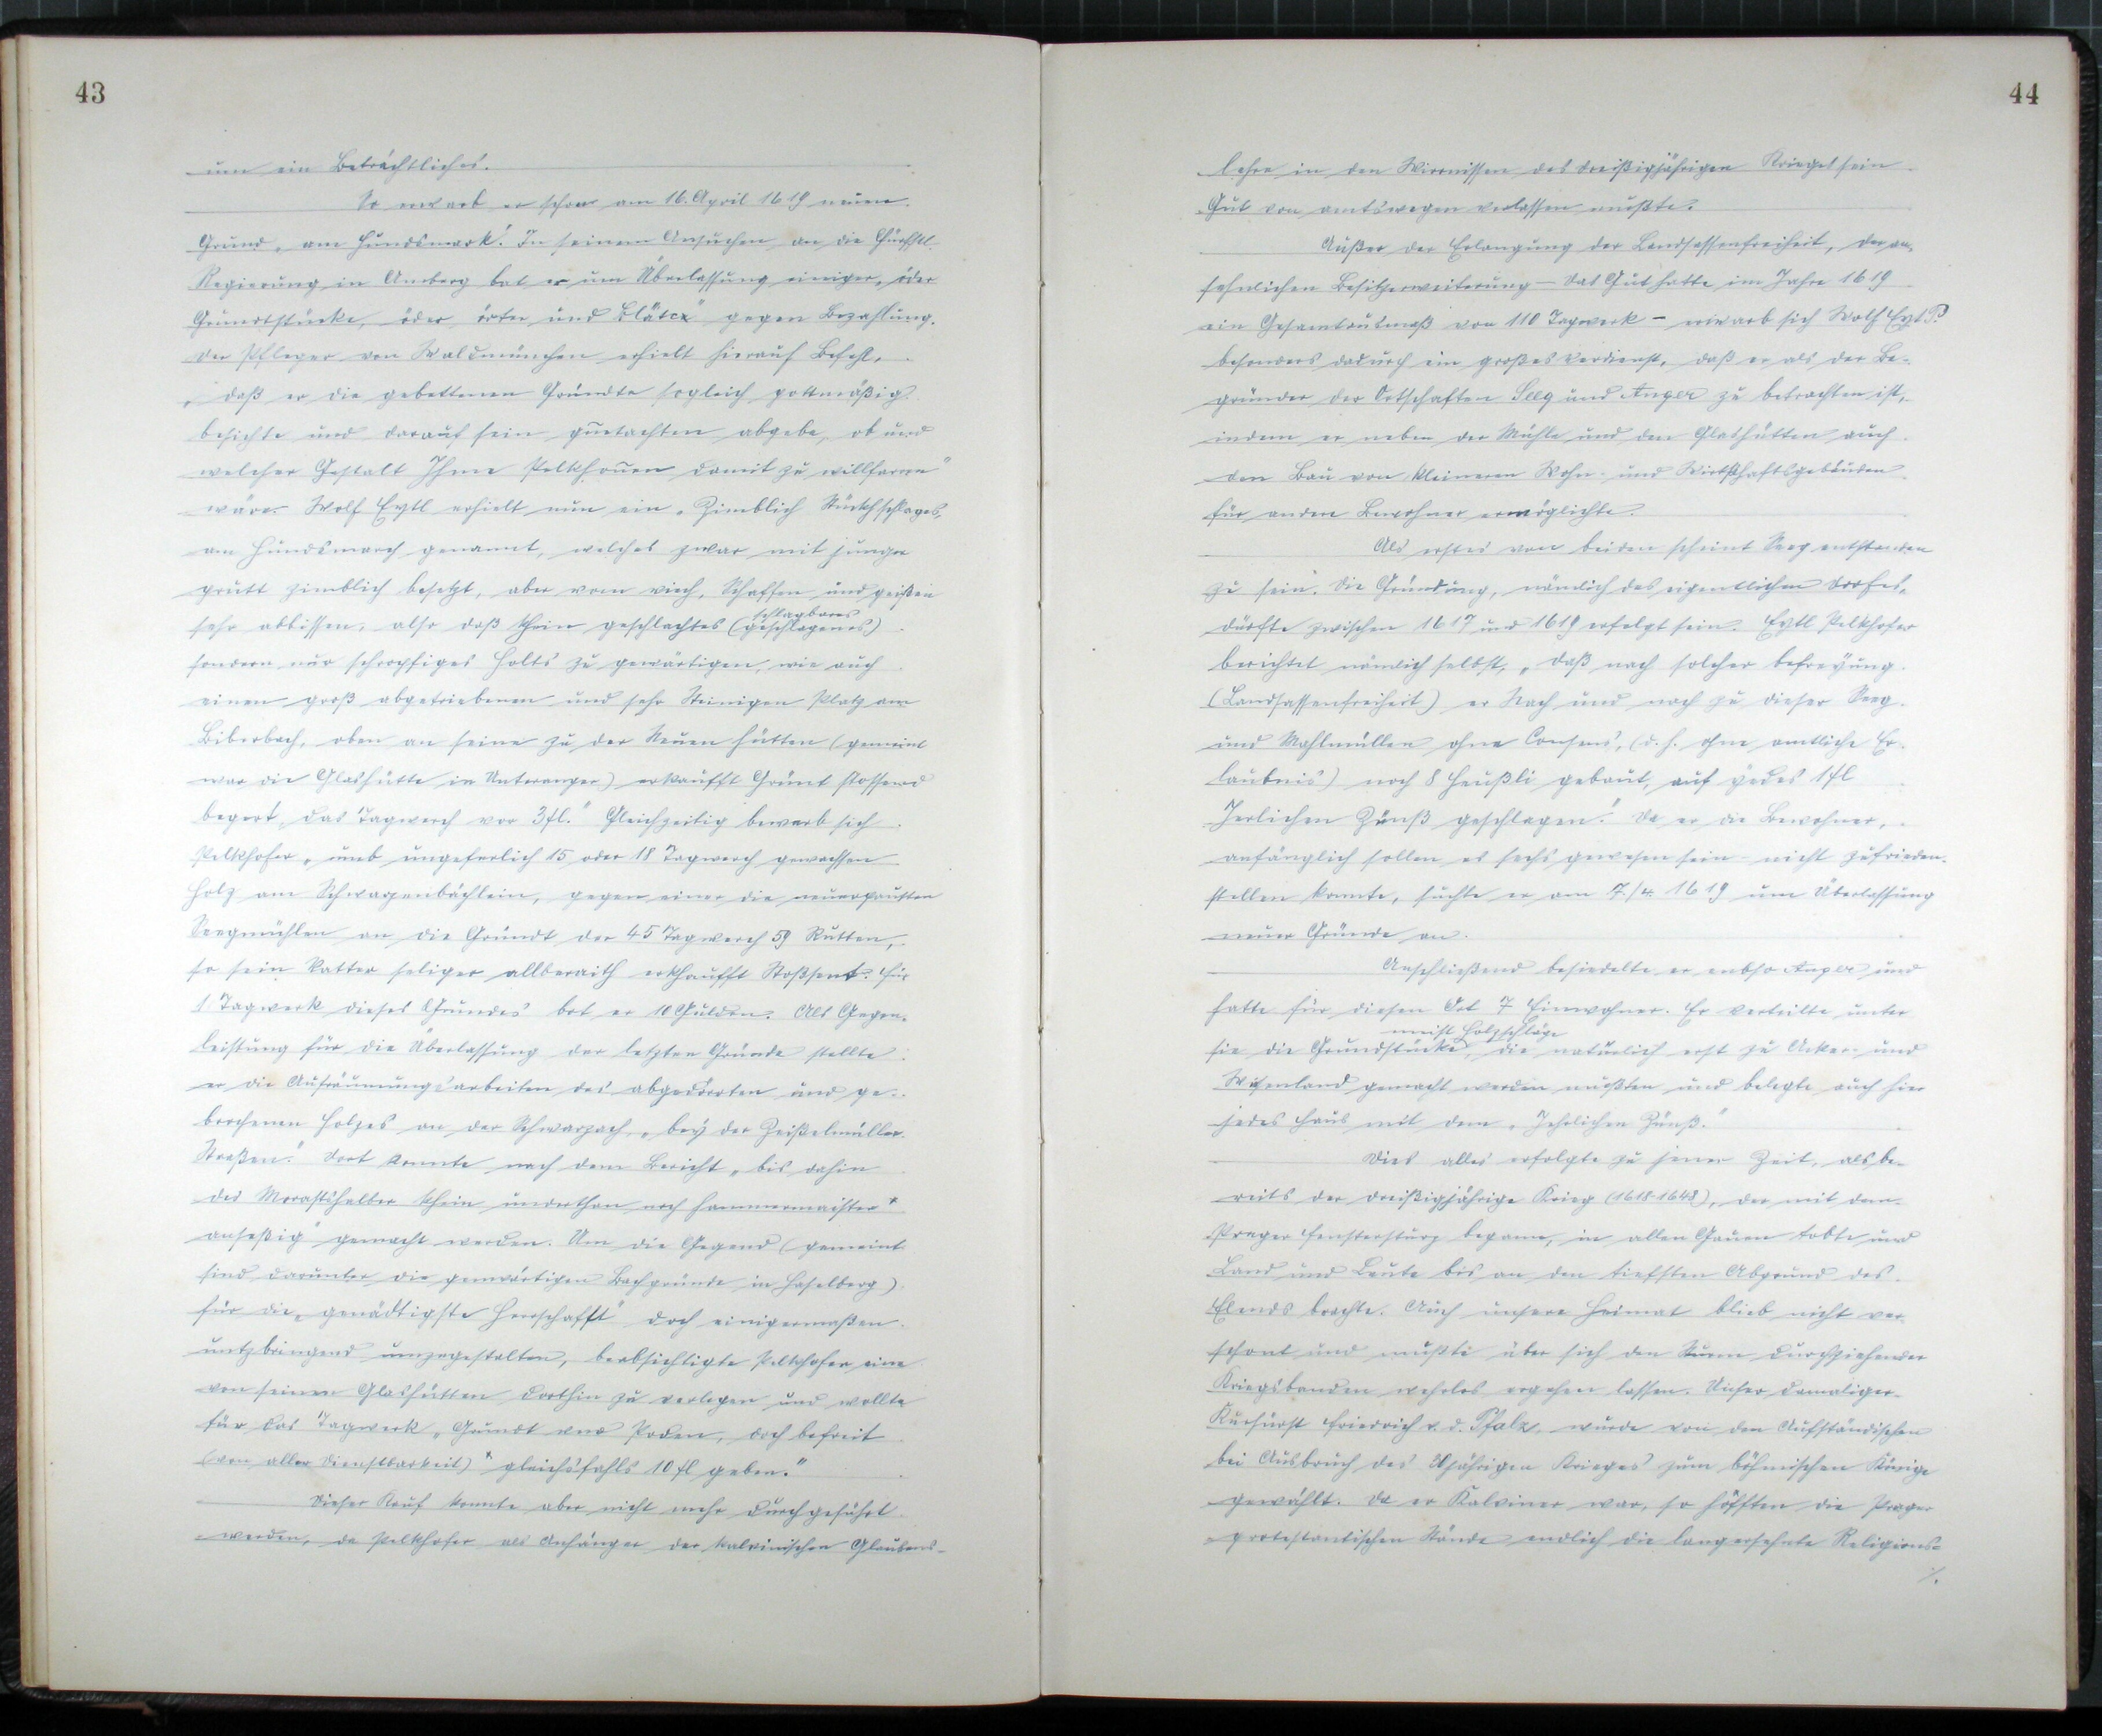 43
um ein Beträchtliches.
So erwarb er schon am 16. April 1619 neuen
Grund „am Hundsmark“. In seinem Ansuchen an die Churfstl.
Regierung in Amberg bat er um Überlassung einiger „öder
Grundtstücke, öder örter und Plätze“ gegen Bezahlung.
Der Pfleger von Waldmünchen erhielt hierauf Befehl,
„daß er die gebettenen Gründte sogleich
besichte und darauf sein guetachten abgebe, ob und
welcher Gestalt Ihme Pelkhouen damit zu willfarren“
wäre. Wolf Eytl erhielt nun ein „Zimblich Stückhschlages,
am Hundsmarch genannt, welches zwar mit junger
zimblich besetzt, aber vom viech, Schaffen und geißen
sehr abbissen, also daß khein geschlachtes (geschlagenes)
schlagbares
sondern nur schropfiges Holts zu gewärtigen, wie auch
einen groß abgetriebenen und sehr Steinigen Platz am
Biberbach, oben an seine zu der Neuen Hütten (gemeint
war die Glashütte in Unteranger) erkaufft Grünt stossend
begert, das Tagwerch vor 3 fl.“ Gleichzeitig bewarb sich
Pelkhofer „umb ungeferlich 15 oder 18 Tagwerch gewachsen
Holz am Schwagenbächlein, gegen einer die neuerpauften
Seegmühlen an die Gründt der 45 Tagwerch 59 Rutten,
so sein Vatter seliger allberaith erkhaufft Stoßsent. Für
1 Tagwerk dieses Grundes bot er 10 Gulden. Als Gegen-
leistung für die Überlassung der letzten Gründe stellte
er die Aufräumungsarbeiten des abgedörrten und ge-
brochenen Holzes an der Schwarzach, „bey der Zeißelmüller
Straßen“. Dort konnte nach dem Bericht „bis dahin
des Morasthalber khein underthan noch hammermaister*
anseßig“ gemacht werden. Um die Gegend (gemeint
sind darunter die genwärtigen Bachgründe in Haselberg)
für die „genädtigste Herrschafft“ doch einigermaßen
nutzbringend umzugestalten, beabsichtigte Pelkhofer eine
von seinen Glashütten dorthin zu verlegen und wollte
für das Tagwerk „Grundt und Poden, doch befreit
(von aller Dienstbarkeit)* gleichsfahls 10 fl geben.“
Dieser Kauf konnte aber nicht mehr durchgeführt
werden, da Pelkhofer als Anhänger der kalvinischen Glaubens-
44
lehre in den Wirrnissen des dreißigjährigen Krieges sein
Gut von amtswegen verlassen mußte.
Außer der Erlangung der Landsassenfreiheit, der an-
sehnlichen Besitzerweiterung – das Gut hatte im Jahre 1619
ein Gesamtausmaß von 110 Tagwerk – erwarb sich Wolf Eytl P.
besonders dadurch ein großes Verdienst, daß er als der Be-
gründer der Ortschaften Seeg und Anger zu betrachten ist,
indem er neben der Mühle und den Glashütten auch
den Bau von kleineren Wohn- und Wirtschaftsgebäuden
für andere Bewohner ermöglichte.
Als erstes von beiden scheint Seeg entstanden
zu sein. Die Gründung, nämlich des eigentlichen Dorfes,
dürfte zwischen 1617 und 1619 erfolgt sein. Eytl Pelkhofer
berichtet nämlich selbst, „daß nach solcher befreyung
(Landsassenfreiheit) er Nach und nach zu dieser Seeg
und Mahlmüllen ohne Consens, (d. h. ohne amtliche Er-
laubnis) noch 8 Heußli gebaut, auf yedes 1 fl
Jerlichen Zünß geschlagen“. Da er die Bewohner,
anfänglich sollen es sechs gewesen sein – nicht zufrieden-
stellen konnte, suchte er am 7./4. 1619 um Überlassung
neuer Gründe an.
Anschließend besiedelte er enbso Anger und
hatte für diesen Ort 7 Einwohner. Er verteilte unter
meist Holzschläge
sie die Grundstücke, die natürlich erst zu Acker- und
Wisenland gemacht werden mußten und belegte auch hier
jedes Haus mit dem „Jehrlichen Zünß.“
Dies alles erfolgte zu jener Zeit, als be-
reits der dreißigjährige Krieg (1618-1648), der mit dem
Prager Fenstersturz begann, in allen Gauen tobte und
Land und Leute bis an den tiefsten Abgrund des
Elends brachte. Auch unsere Heimat blieb nicht ver-
schont und mußte über sich den Sturm durchziehender
Kriegsbanden wehrlos ergehen lassen. Unser damaliger
Kurfürst Friedrich v. d. Pfalz, wurde von den Aufständischen
bei Ausbruch des 30jährigen Krieges zum böhmischen Könige
gewählt. Da er Kalviner war, so hofften die Prager
protestantischen Stände endlich die langersehnte Religions-
./.